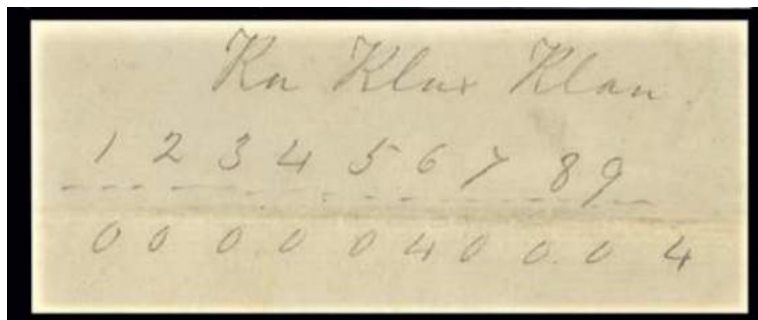 Ku Klux Klan
1 2 3 4 5 6 7 8 9
0 0 0 0 0 4 0 0 0 4